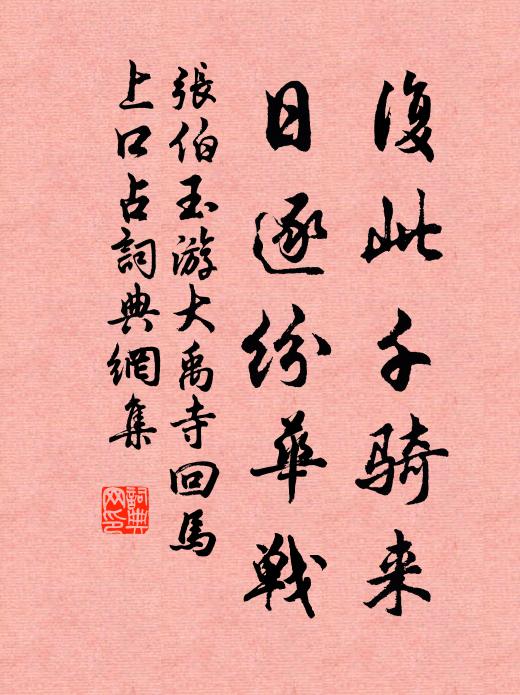 復此千骑来
日逐纷華戰
張伯玉游大禹寺回馬
上口占詞典網集
詞典
网印